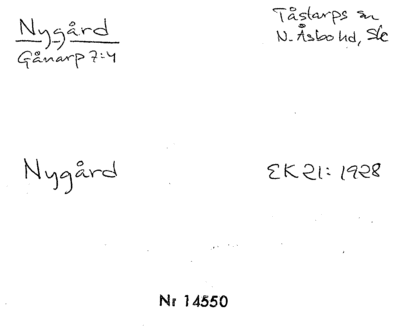 Nygård
Gånarp 7:4
Tåstarps sn
N. Åsbo hd, Sk
Nygård
EK 21: 1928
Nr 14550